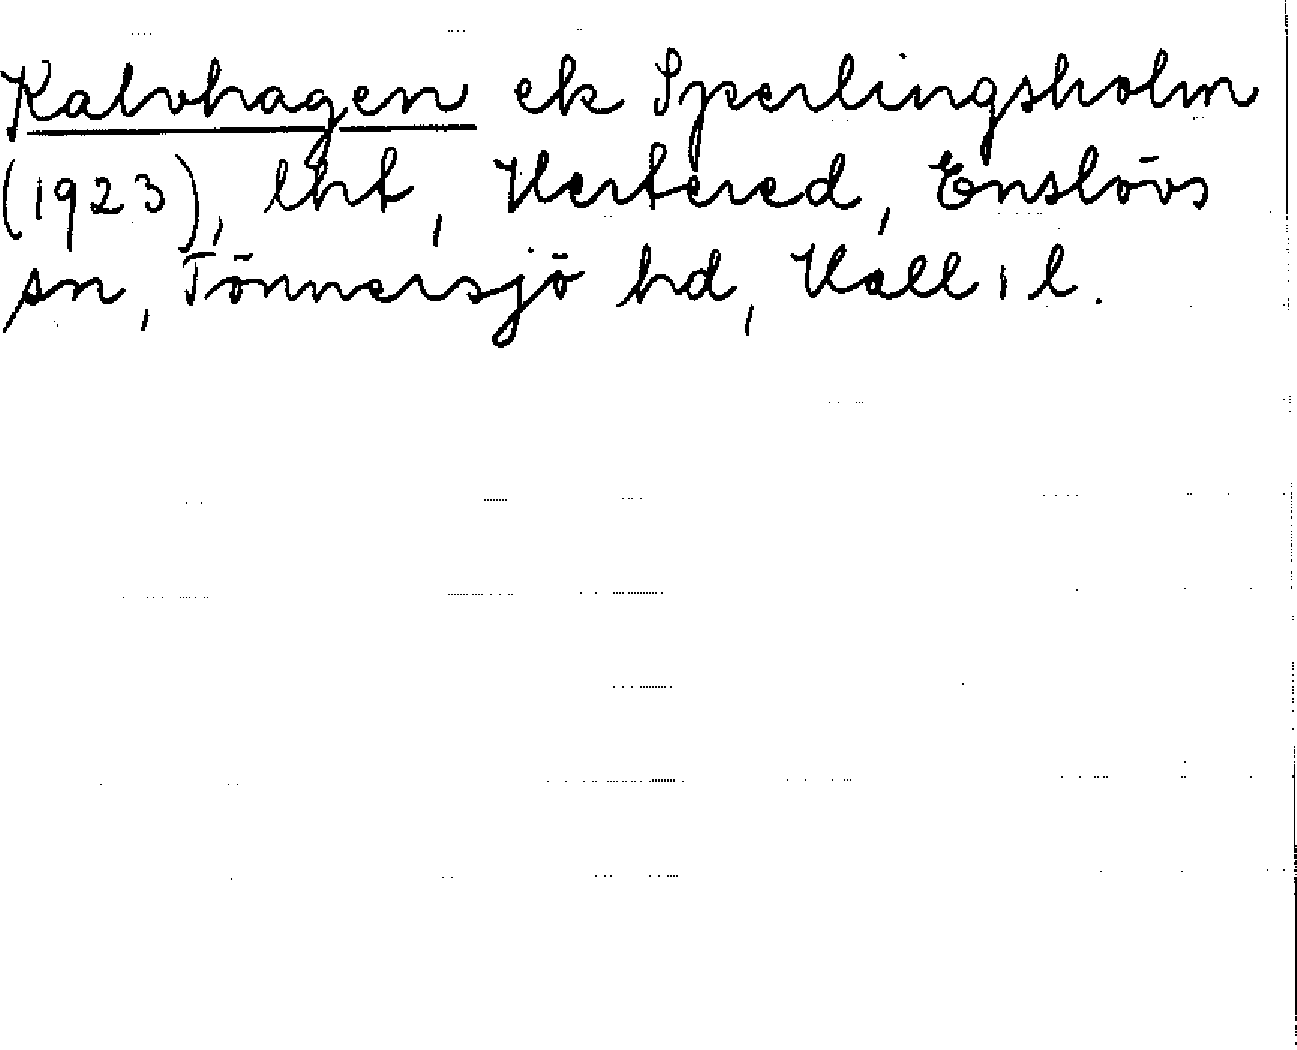 Kalvhagen ek Sperlingsholm
(1923), lht, Hertered, Enslövs
sn, Tönnersjö hd, Hall. l.